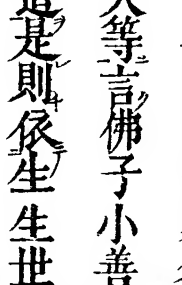 等言佛子小善
是則依生生世